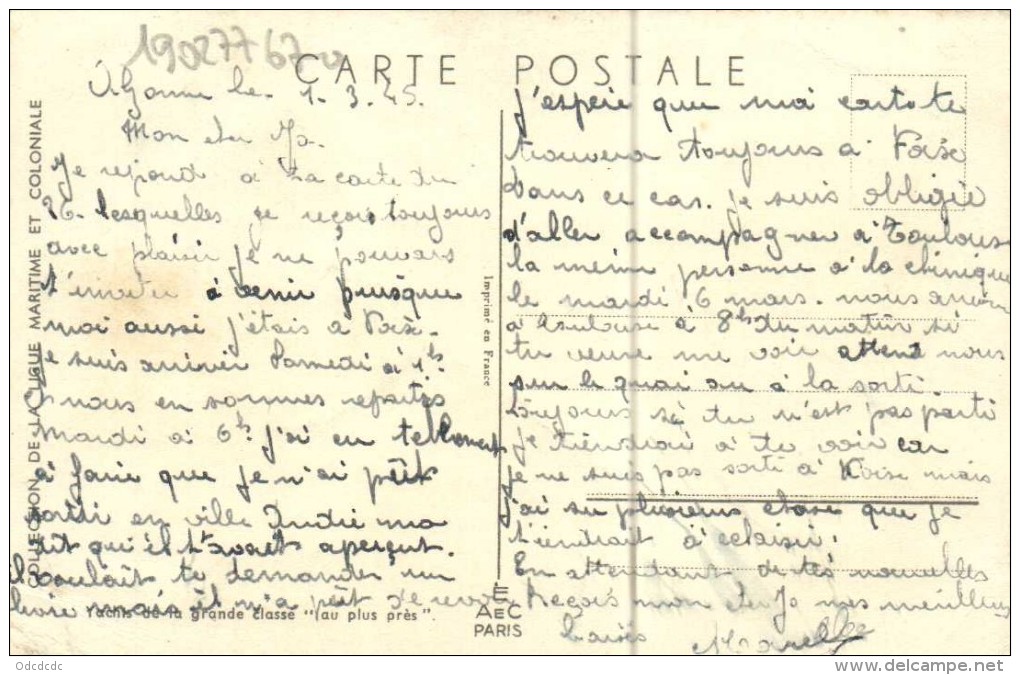 1902776700
CARTE POSTALE
le 1.3.45.
Mon cher Jo.
Je repond a ta carte du
26. lesquelles je reçois toujours
avec plaisir je ne pouvais
t'inviter à venir puisque
moi aussi j'étais a Foix.
Je suis arriver Samedi à 1h
nous en sommes repartis
Mardi à 6h. j'ai eu tellement
à faire que je n'ai pêut
sortir en ville André ma
dit qu'il t'avait aperçut.
il voulait te demander un
livre mais il m'a
j'espère que ma carte te
trouvera toujours a Foix
dans ce cas. je suis obligée
d'aller accompagner à Toulouse
la meme personne a la clinique
le mardi 6 mars. nous
à Toulouse à 8hs du matin si
tu veux me voir attend nous
sur le quai ou à la sorti
toujours si tu n'est pas parti
je tiendrai à te voir car
je ne suis pas sorti à Foix mais
j'ai su plusieurs chose que je
tiendrait à éclaisir.
En attendant de tes nouvelles
Reçois mon cher Jo mes meilleurs
baisers
COLLECTION DE LA LIGUE MARITIME ET COLONIALE
Imprimé en France
Yachts de la grande classe "au plus près".
É
AEC
PARIS
Odcdcdc
www.delcampe.net